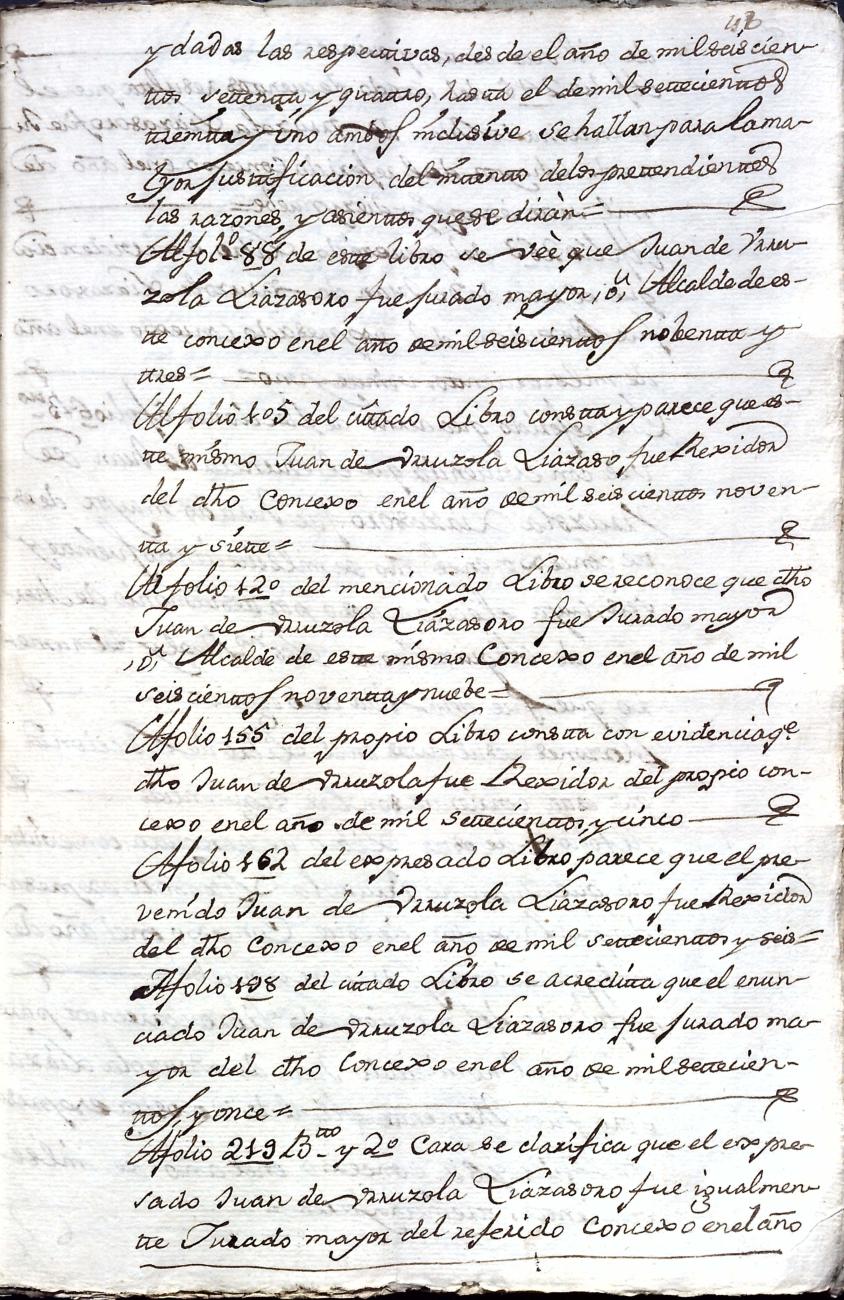 43
y dadas las respectivas, desde el año de mil seiscien-
ttos settentta y quattro, hasta el de mil settecienttos
ttreintta y uno ambos inclusive se hallan para la ma-
yor justificación del intentto delos prettendienttes
las razones, y asienttos que se diràn=
Al folº 88 de este libro se veè que Juan de Urru-
zola Liazasoro fue Jurado mayor, ,ò, Alcalde de es-
te concexo en el año de mil seiscienttos nobentta y
ttres=
Al folio 105 del cittado Libro constta y parece que es-
te mismo Juan de Urruzola Liazaso fue Rexidor
del dho Concexo en el año de mil seiscienttos noven-
tta y siette=
Al folio 120 del mencionado Libro se reconoce que dho
Juan de Urruzola Liazasoro fue Jurado mayor
,ò, Alcalde de este mismo Concexo en el año de mil
seiscienttos noventta y nuebe=
Al folio 155 del propio Libro constta con evidencia qe
dho Juan de Urruzola fue Rexidor del propio con-
cexo en el año de mil settecienttos, y cinco
Al folio 162 del expresado Libro parece que el pre-
venido Juan de Urruzola Liazasoro fue Rexidor
del dho Concexo en el año de mil settecienttos y seis=
Al folio 198 del cittado Libro se acreditta que el enun-
ciado Juan de Urruzola Liazasoro fue Jurado ma-
yor del dho Concexo en el año de mil settecien-
ttos, y once=
Al folio 219 Btto y 2º Cara se clarifica que el expre-
sado Juan de Urruzola Liazasoro fue igualmen-
te Jurado mayor del referido Concexo en el año